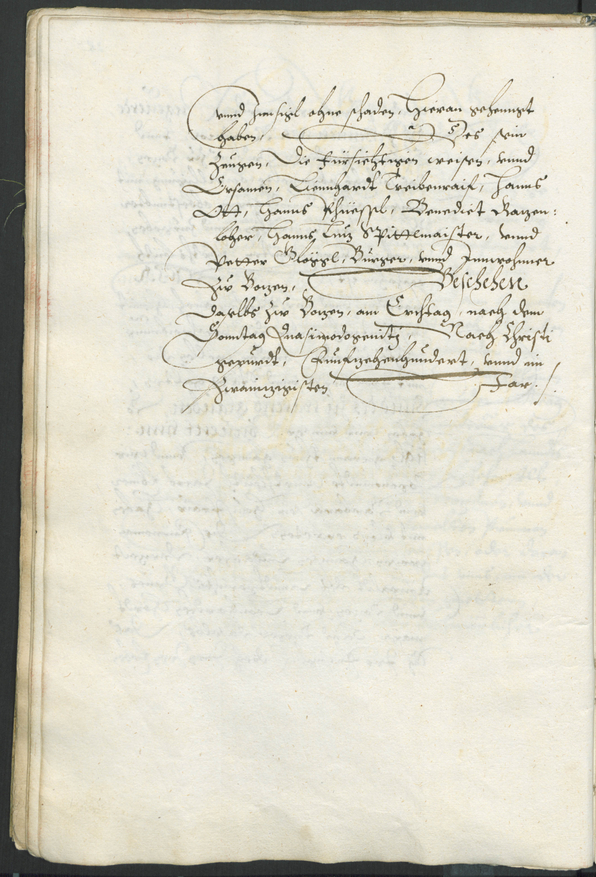 vnnd Innsigl ohne schaden, hieran gehenngt
haben, Des sein
Zeugen, die fürsichtigen weisen, vnnd
Ersamen, Liennhardt Treibenraif, Hanns
Ott, Hanns Khüeppl, Benedict Kazen:
loher, Hanns Luz Spittlmaister, vnnd
Petter Glöggl, Burger, vnnd Innwohner
Zu Bozen, Beschehen
daselbs Zu Bozen, am Erchtag, nach dem
Sonntag Quasimodogeniti Nach Christi
gepurdt, Fünfzehenhundert, vnnd im
Zwainzigisten Jar.